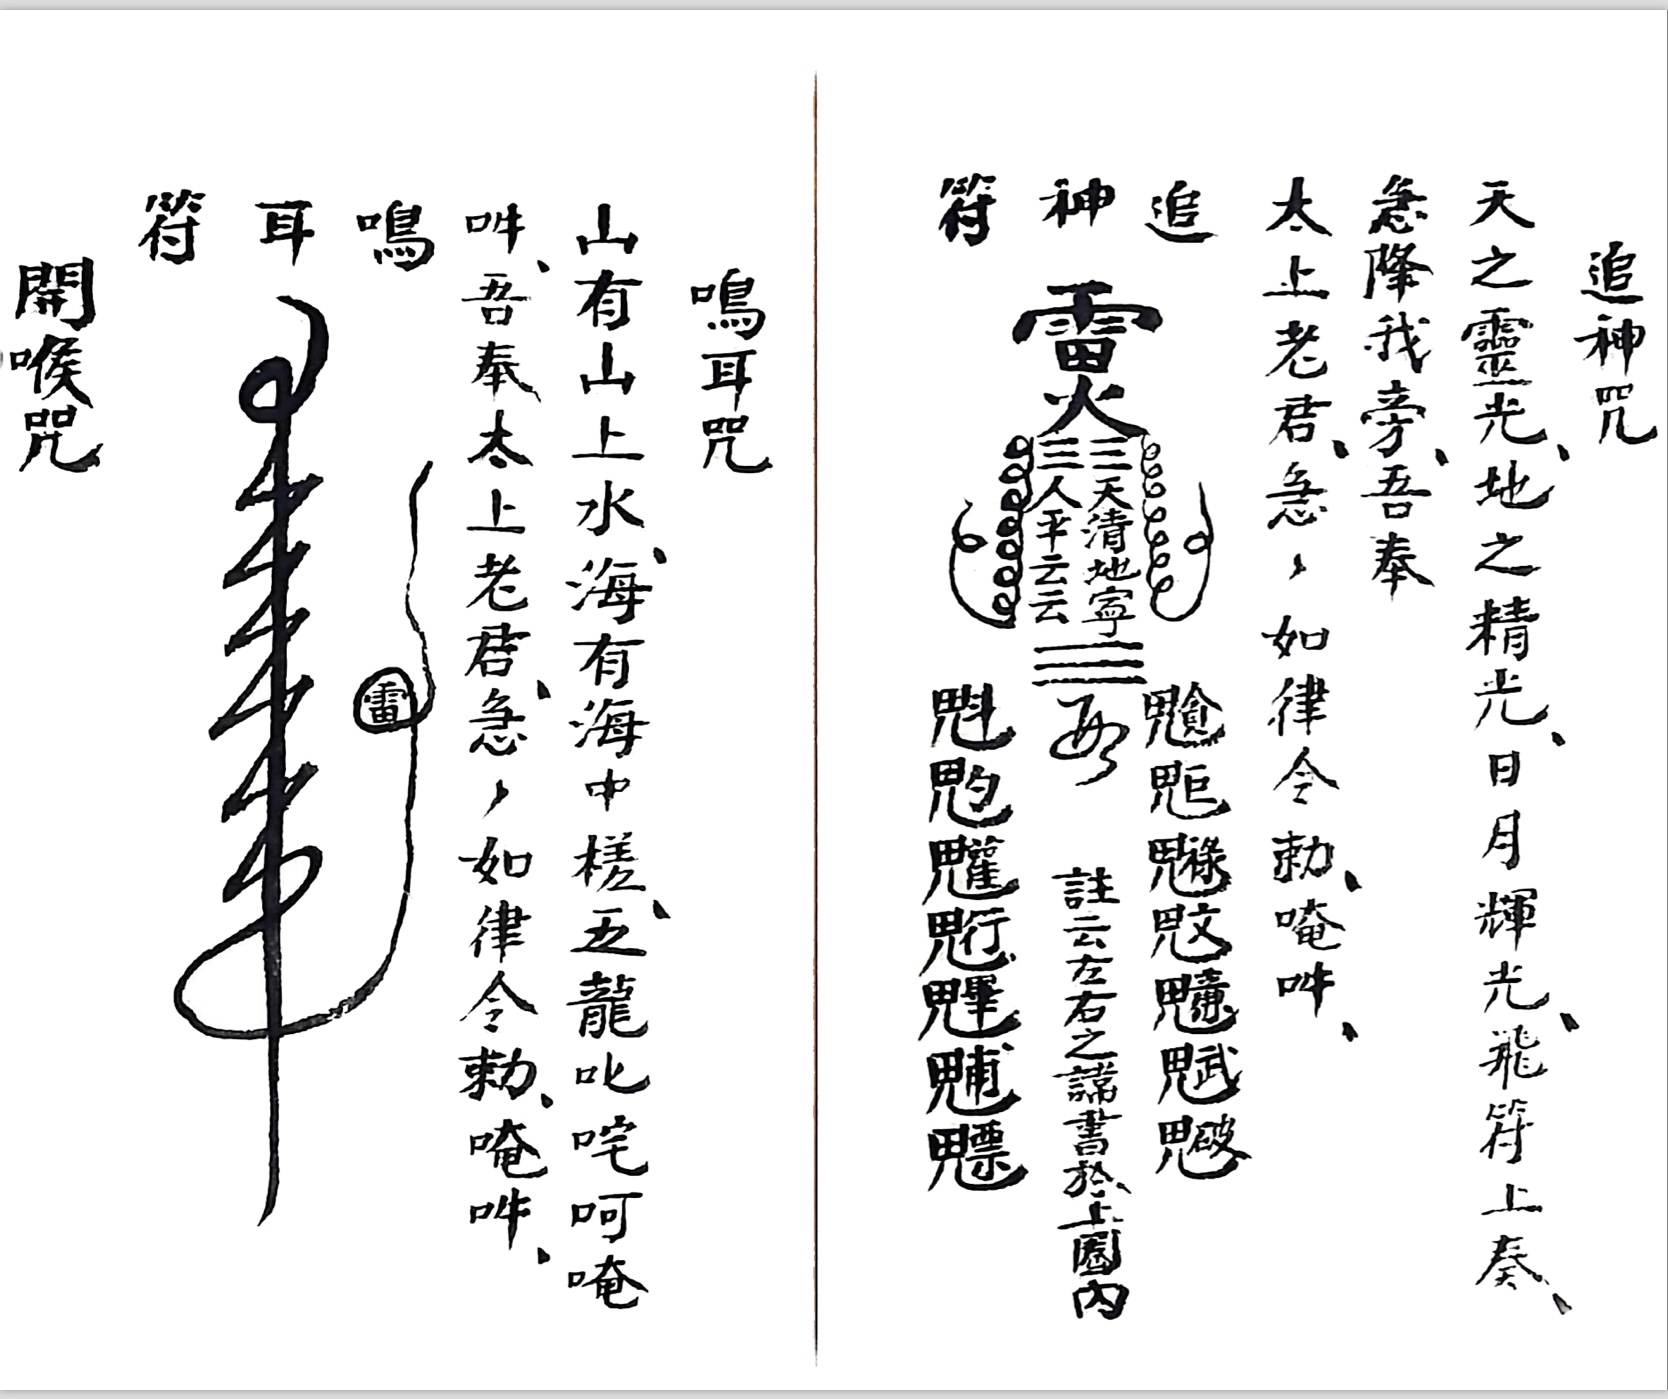 追神咒
天之靈光、地之精光、日月輝光、飛符上奏、
急降我旁、吾奉
太上老君、急々如律令勅、唵吽、
追神符
雷火
三三
天清地寧
人平云云
魁𩲃魓魒
註云左右之諱書於上圈內
鳴耳咒
山有山上水、海有海中槎、五龍叱咤呵唵
吽、吾奉太上老君、急々如律令勅、唵吽、
鳴耳符
雷
開喉咒